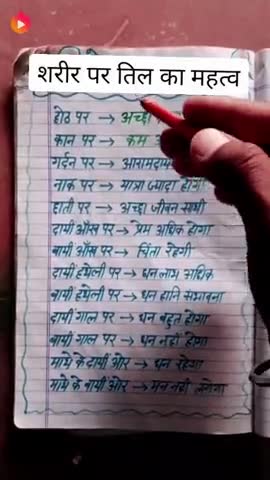 शरीर पर तिल का महत्व
होठ पर → अच्छा
कान पर → कम
गर्दन पर → आरामदाय
नाक पर → मात्रा ज्यादा होगी
छाती पर → अच्छा जीवन साथी
दायीं आँख पर → प्रेम अधिक होगा
बायीं आँख पर → चिंता रहेगी
दायीं हथेली पर → धन लाभ अधिक
बायीं हथेली पर → धन हानि संभावना
दायीं गाल पर → धन बहुत होगा
बायीं गाल पर → धन नहीं होगा
माथे के दायीं ओर → धन रहेगा
माथे के बायीं ओर → मन नहीं लगेगा